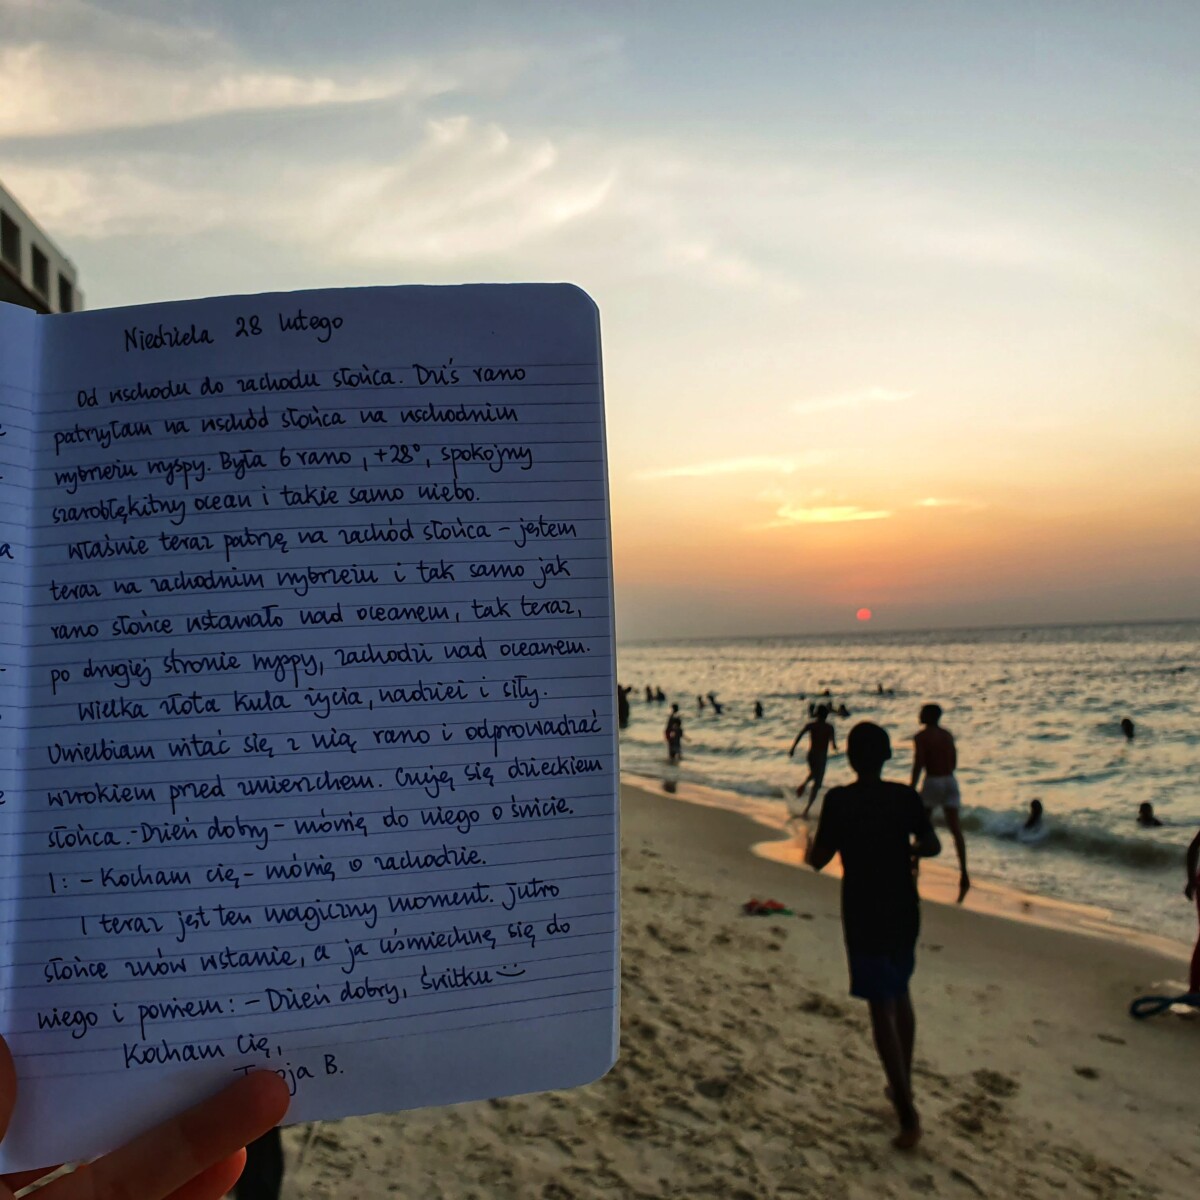 Niedziela 28 lutego
Od wschodu do zachodu słońca. Dziś rano
patrzyłam na wschód słońca na wschodnim
wybrzeżu wyspy. Była 6 rano, +28°, spokojny
szarobłękitny ocean i takie samo niebo.
Właśnie teraz patrzę na zachód słońca - jestem
teraz na zachodnim wybrzeżu i tak samo jak
rano słońce wstawało nad oceanem, tak teraz,
po drugiej stronie wyspy, zachodzi nad oceanem.
Wielka złota kula życia, nadziei i siły.
Uwielbiam witać się z nią rano i odprowadzać
wzrokiem przed zmierzchem. Czuję się dzieckiem
słońca. - Dzień dobry - mówię do niego o świcie.
I: - Kocham cię - mówię o zachodzie.
I teraz jest ten magiczny moment. Jutro
słońce znów wstanie, a ja uśmiechnę się do
niego i powiem: - Dzień dobry, świtku
Kocham Cię,
Twoja B.